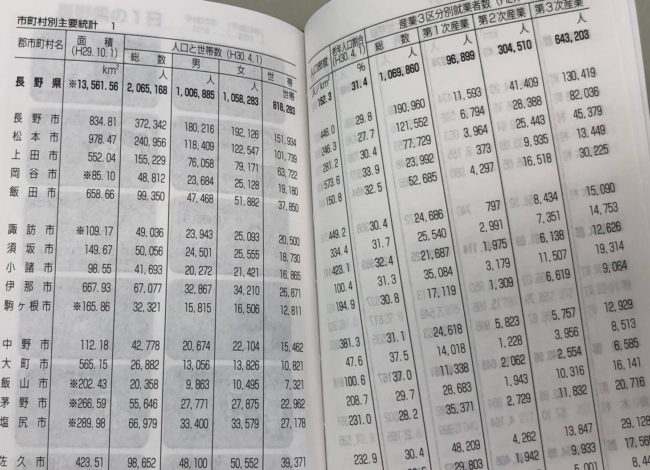 市町村別主要統計 1
郡市町村名 面積 (H29.10.1) 人口と世帯数 (H30.4.1)
総数 男 女 世帯
km² 人 人 人 世帯
長野県 ※13,561.56 2,065,168 1,006,885 1,058,283 818,283
長野市 834.81 372,342 180,216 192,126 151,934
松本市 978.47 240,956 118,409 122,547 101,739
上田市 552.04 155,229 76,058 79,171 63,722
岡谷市 ※85.10 48,812 23,684 25,128 19,180
飯田市 658.66 99,350 47,468 51,882 37,850
諏訪市 ※109.17 49,036 23,943 25,093 20,500
須坂市 149.67 50,056 24,501 25,555 18,730
小諸市 98.55 41,693 20,272 21,421 16,865
伊那市 667.93 67,077 32,867 34,210 26,871
駒ヶ根市 ※165.86 32,321 15,815 16,506 12,811
中野市 112.18 42,778 20,674 22,104 15,462
大町市 565.15 26,882 13,056 13,826 10,821
飯山市 ※202.43 20,358 9,863 10,495 7,321
茅野市 ※266.59 55,646 27,771 27,875 22,962
塩尻市 ※289.98 66,979 33,400 33,579 27,178
佐久市 423.51 98,652 48,100 50,552 39,371
人口密度 老年人口割合 (H30.4.1) 産業3区分別就業者数
総数 第1次産業 第2次産業 第3次産業
人/km² % 人 人 人 人
152.3 31.4 1,069,860 96,899 304,510 643,203
446.0 29.8 190,960 11,593 41,409 130,419
27.7 121,552 6,794 28,388 82,036
281.2 30.4 77,729 3,964 25,443 45,379
573.6 33.9 23,992 9,935 13,449
150.8 32.5 52,685 4,297 16,518 30,225
449.2 30.4 24,686 797 8,434 15,090
334.4 31.7 25,540 2,991 7,351 14,753
423.1 32.4 21,687 1,975 6,138 12,626
100.4 31.3 35,084 3,179 11,507 19,314
194.9 30.8 17,119 1,309 6,619 9,064
381.3 31.1 24,618 5,823 5,757 12,929
47.6 37.5 14,018 1,228 3,956 8,513
100.6 37.0 11,338 2,062 2,554 6,585
208.7 29.7 28,683 1,943 10,316 16,141
231.0 28.2 35,371 2,729 11,832 20,716
232.9 30.4 48,209 13,847 29,128